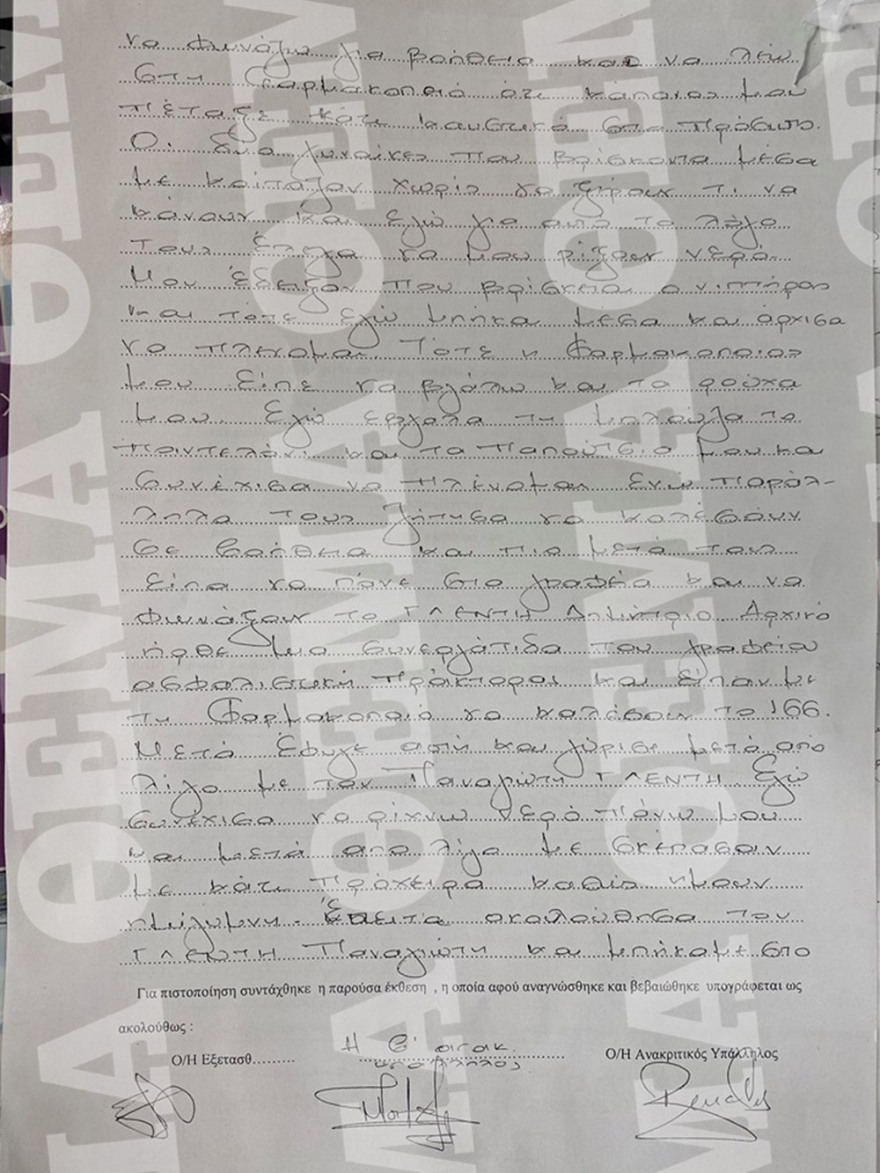 να φωνάζω για βοήθεια και να λέω
στη φαρμακοποιό ότι κάποιος μου
πέταξε κάτι καυστικό στο πρόσωπο.
Ο. δυο γυναίκες που βρίσκονταν μέσα
με κοίταζαν χωρίς να ξέρουν τι να
κάνουν και εγώ για αυτό το λόγο
τους έλεγα να μου ρίξουν νερό.
Μου έδειξαν που βρίσκεται ο νιπτήρας
και τότε εγώ μπήκα μέσα και άρχισα
να πλένομαι. Τότε η Φαρμακοποιός
μου είπε να βγάλω και τα ρούχα
μου. Εγώ έβγαλα τη μπλούζα το
παντελόνι και τα παπούτσια μου και
συνέχισα να πλένομαι ενώ παράλ-
ληλα τους ζήτησα να καλέσουν
σε βοήθεια και πιο μετά τους
είπα να πάνε στο γραφεία και να
φωνάξουν το ΓΛΕΝΤΗ Δημήτριο Αρχικά
ήρθε μια συνεργάτιδα του γραφείου
ασφαλιστική πράκτορας και είπαν με
τη Φαρμακοποιό να καλέσουν το 166.
Μετά έφυγε αυτή και γύρισε μετά από
λίγο με τον Παναγιώτη ΓΛΕΝΤΗ Εγώ
συνέχισα να ρίχνω νερό πάνω μου
και μετά από λίγο με σκέπασαν
με κάτι πρόχειρα καθώς ήμουν
ημίγυμνη. Έπειτα ακολούθησα τον
ΓΛΕΝΤΗ Παναγιώτη και μπήκαμε στο
Για πιστοποίηση συντάχθηκε η παρούσα έκθεση , η οποία αφού αναγνώσθηκε και βεβαιώθηκε υπογράφεται ως
ακολούθως :
Ο/Η Εξετασθ......... Η Β' ανακ. υπάλληλος Ο/Η Ανακριτικός Υπάλληλος
ΘΕΜΑ